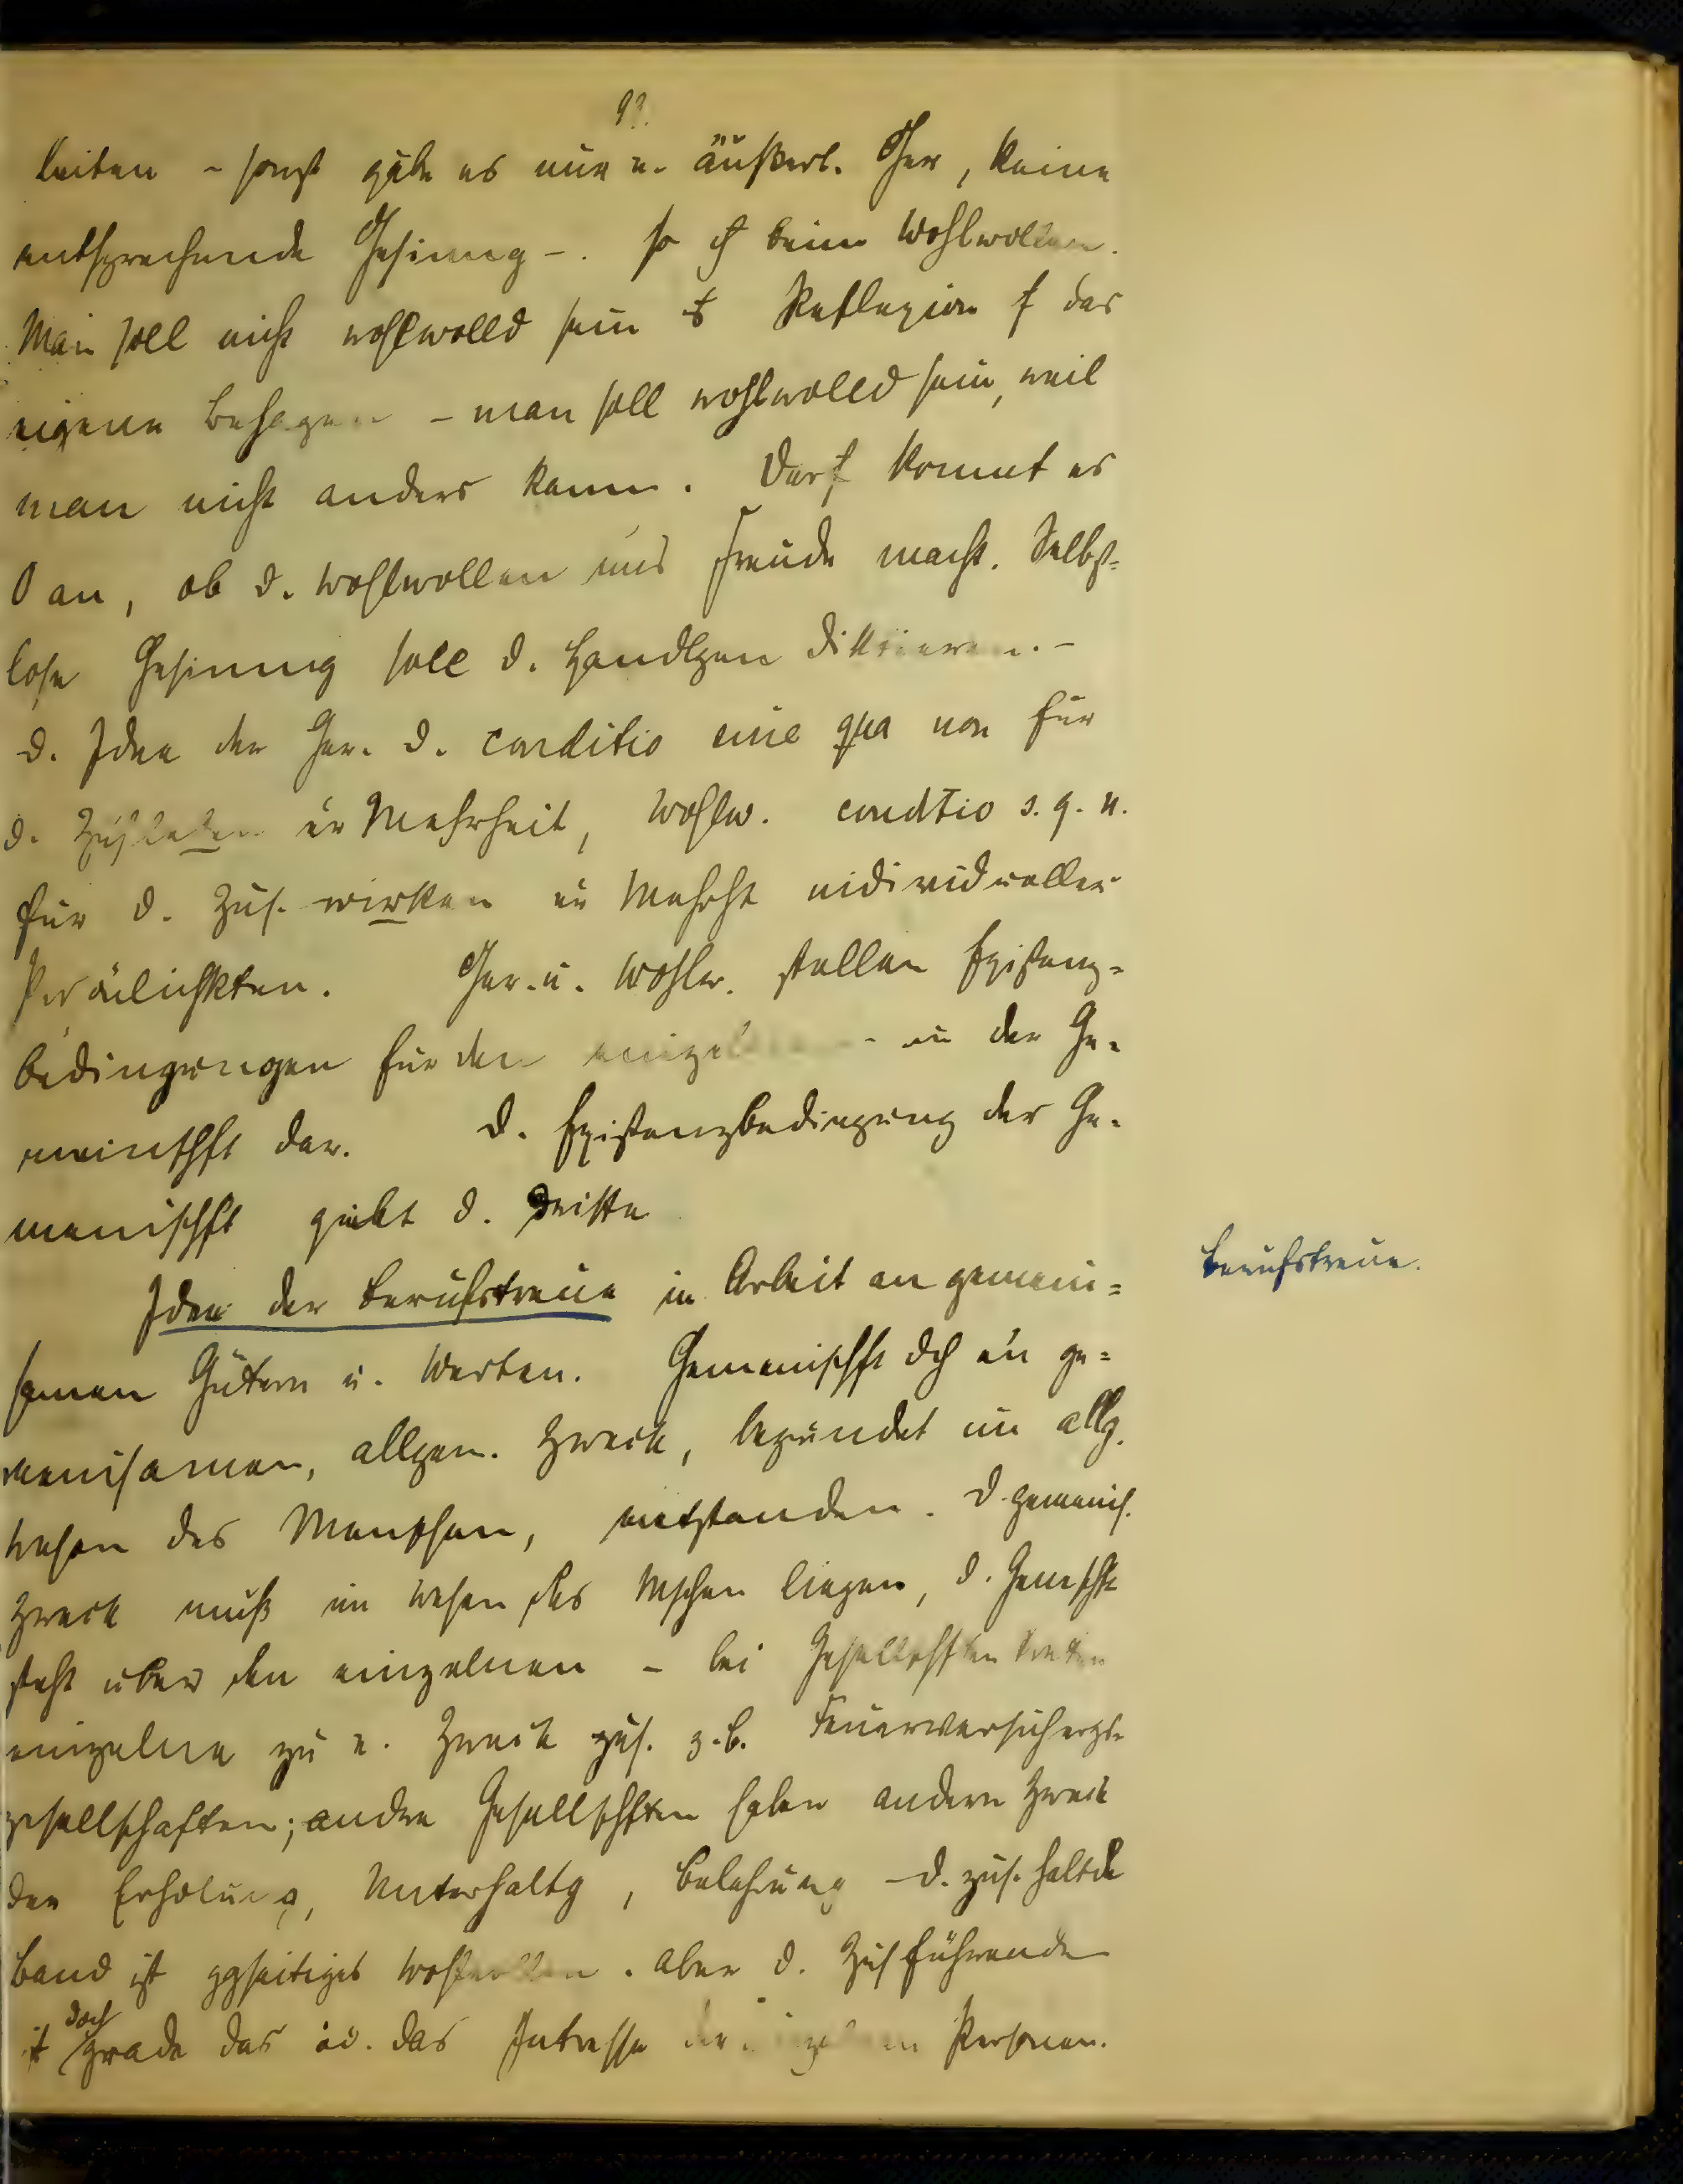 93.
leiten – sonst gäbe es nur e. äußerl. Ger, keine
entsprechende Gesinnung –. So ist beim Wohlwollen.
Man soll nicht wohlwolld sein Reflexion f das
eigene Behagen – man soll wohlwolld sein, weil
man nicht anders kann. Darf kommt es
0 an, ob d. Wohlwollen uns Freude macht. Selbst-
lose Gesinnung soll d. Handlgen diktieren. –
D. Idee der Ger. d. conditio sine qua non für
d. er Mehrheit, Wohlw. condtio s. q. n.
für d. Zus. wirken er Mehrht individueller
Persönlichkten. Ger. u. Wohlw. stellen Existenz-
bedingungen für den einzelnen – in der Ge-
meinschft dar. D. Existenzbedingung der Ge-
meinschft giebt d. dritte
Idee der Berufstreue in Arbeit an gemein-
Berufstreue.
samen Gütern u. Werten. Gemeinschft dch ein ge-
meinsamen, allgem. Zweck, begründet im allg.
Wesen des Menschen, entstanden. D. gemeins.
Zweck muß im Wesen des Mschen liegen, d. Gemschft
steht über den einzelnen – bei Gesellschften treten
einzelne zu e. Zweck zus. z. B. Feuerversichergs-
gesellschaften; andre Gesellschften haben andern Zweck
der Erholung, Unterhaltg, Belehrung – d. zus. haltde
Band ist ggseitiges Wohlwollen. Aber d. Zusführende
ist doch grade das das Intresse der einzelnen Personen.